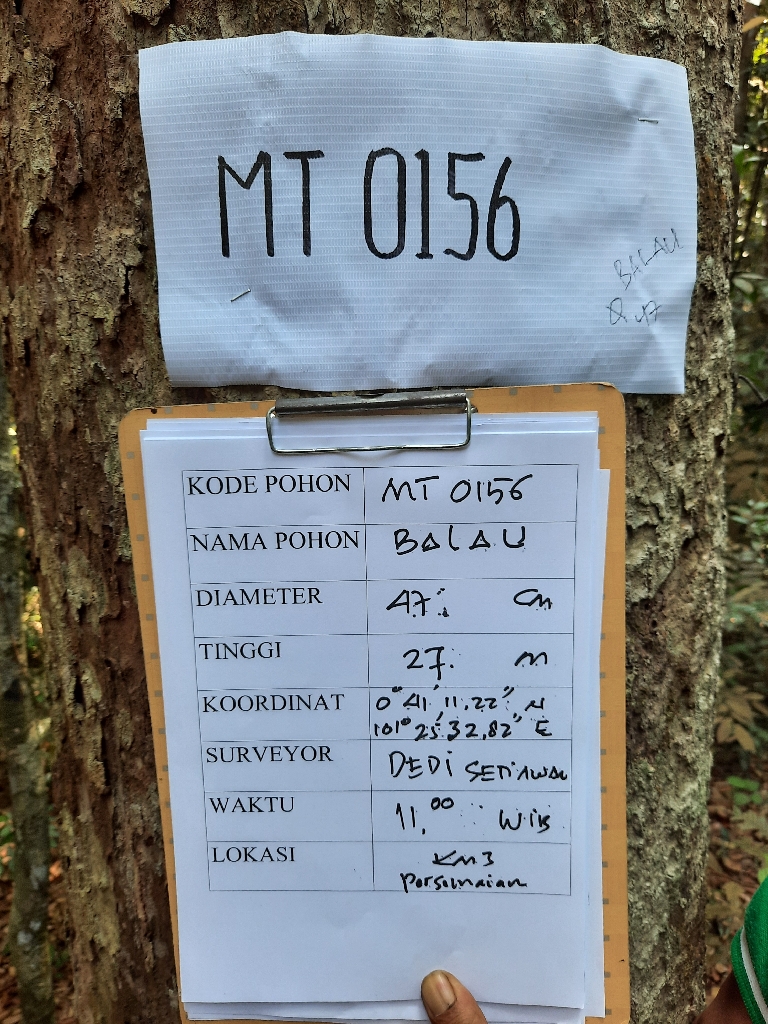 MT 0156
BALAU
Q.47
KODE POHON MT 0156
NAMA POHON BALAU
DIAMETER 47. Cm
TINGGI 27. m
KOORDINAT 0° 41' 11,22" N
101° 25' 32,82" E
SURVEYOR DEDI SETIAWAN
WAKTU 11,00 WIB
LOKASI KM3